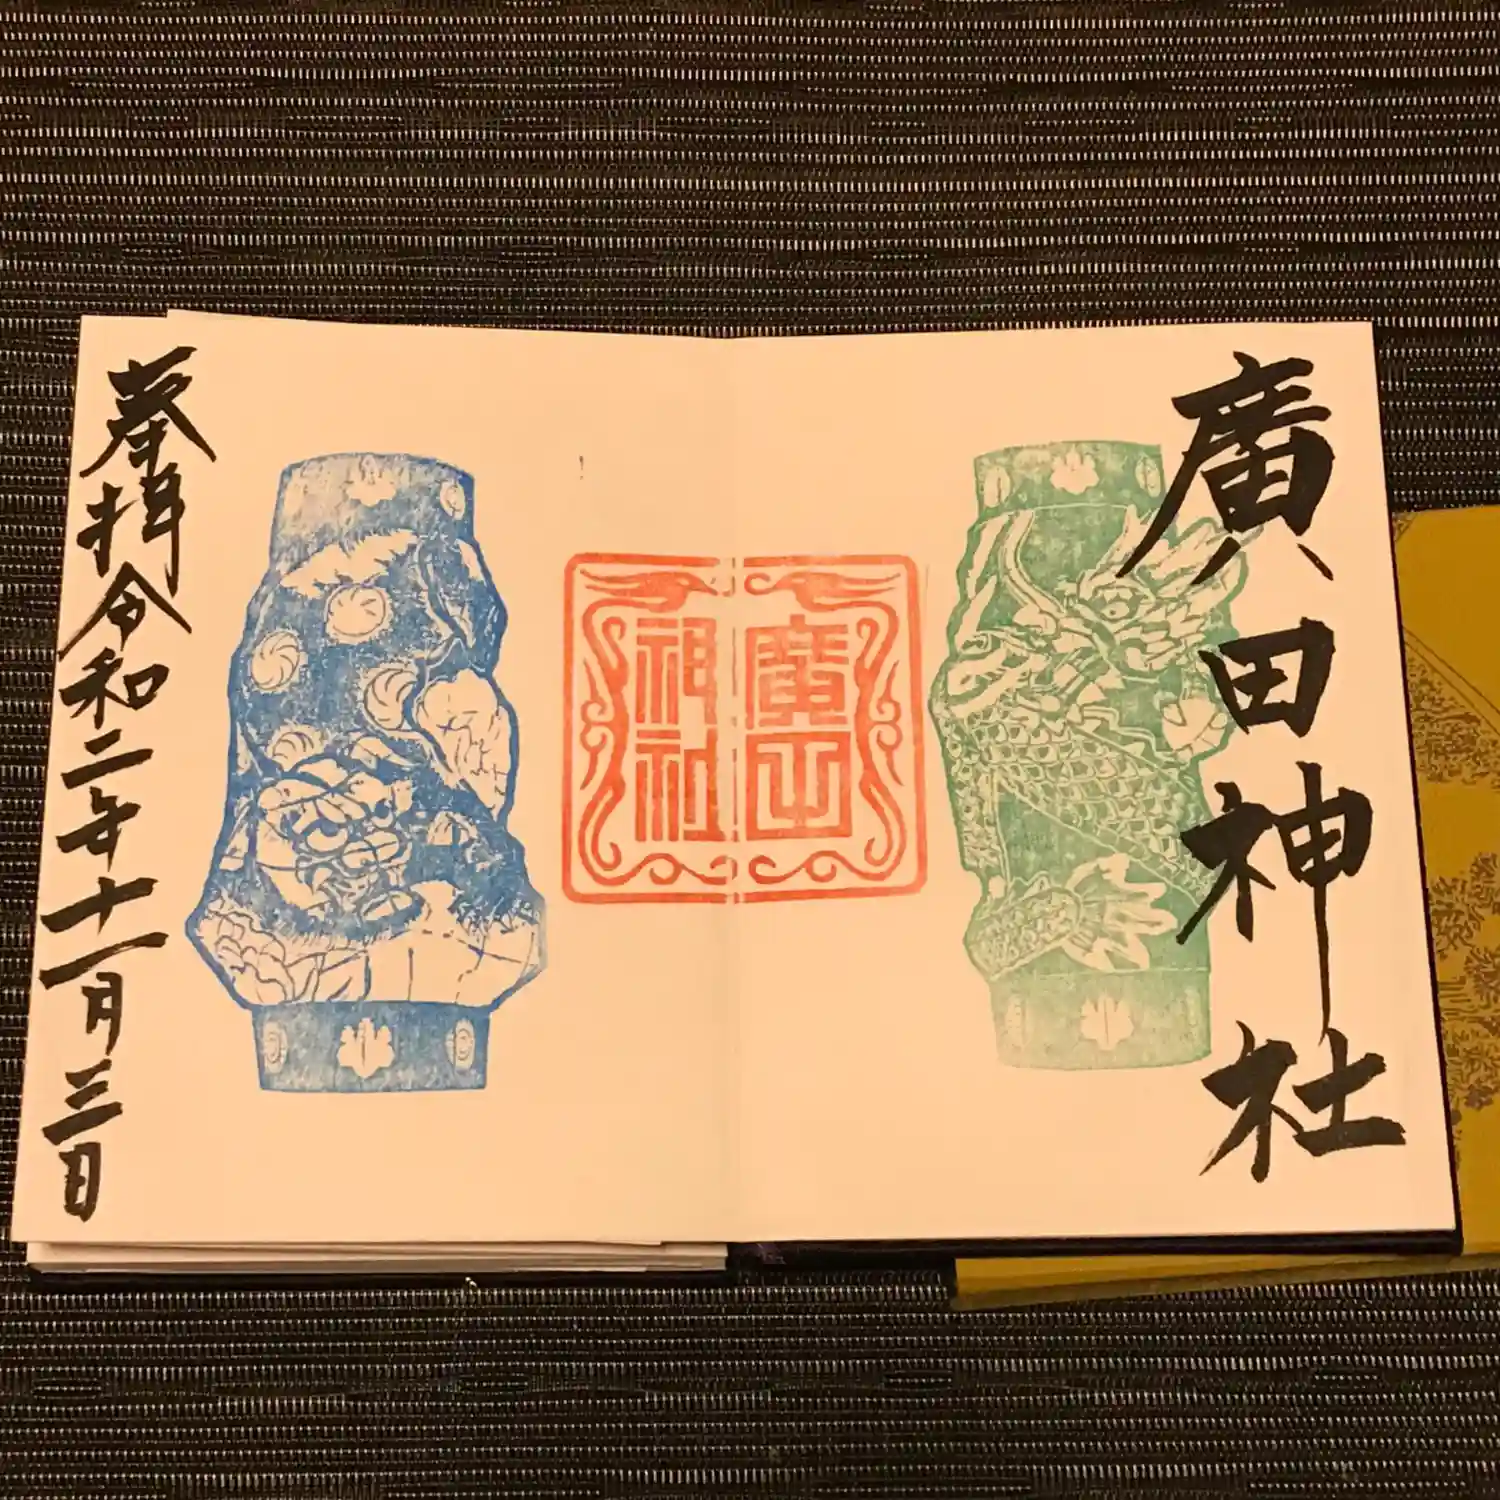 廣田神社
廣田
神社
奉拝令和二年十一月三日